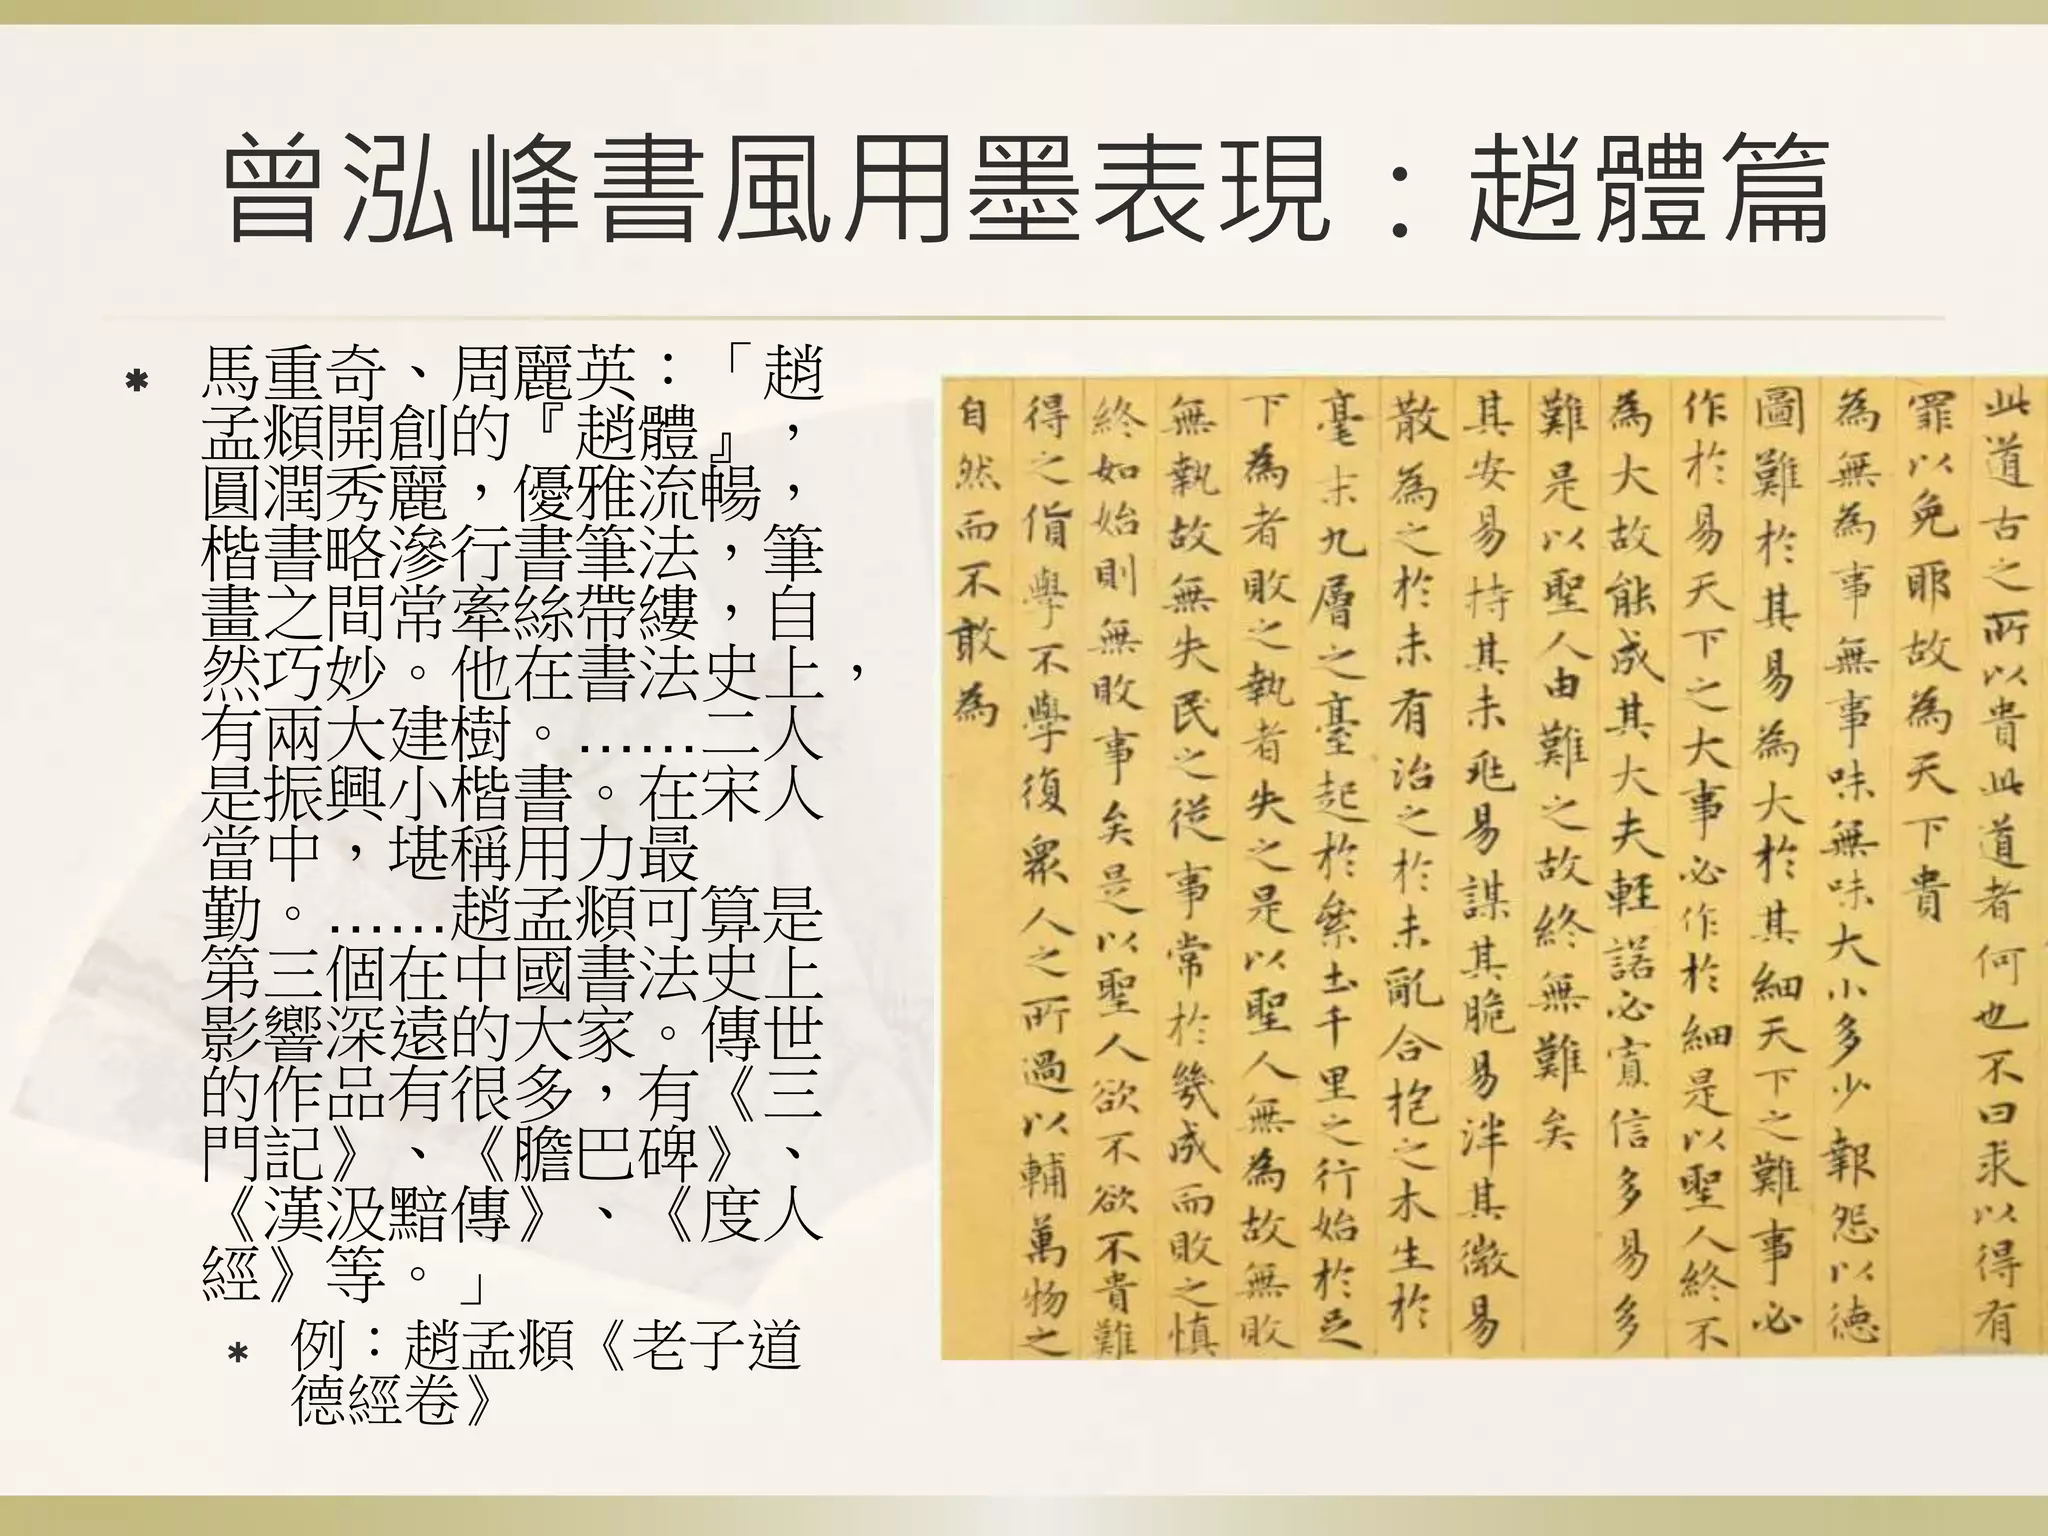 曾泓峰書風用墨表現：趙體篇
馬重奇、周麗英：「趙
孟頫開創的『趙體』，
圓潤秀麗，優雅流暢，
楷書略滲行書筆法，筆
畫之間常牽絲帶縷，自
然巧妙。他在書法史上，
有兩大建樹。……二人
是振興小楷書。在宋人
當中，堪稱用力最
勤。……趙孟頫可算是
第三個在中國書法史上
影響深遠的大家。傳世
的作品有很多，有《三
門記》、《膽巴碑》、
《漢汲黯傳》、《度人
經》等。」
例：趙孟頫《老子道
德經卷》
此道古之所以貴此道者何也不曰求以得有
罪以免耶故為天下貴
為無為事無事味無味大小多少報怨以德
圖難於其易為大於其細天下之難事必
作於易天下之大事必作於細是以聖人終不
為大故能成其大夫輕諾必寡信多易多
難是以聖人由難之故終無難矣
其安易持其未兆易謀其脆易泮其微易
散為之於未有治之於未亂合抱之木生於
毫末九層之臺起於絫土千里之行始於足
下為者敗之執者失之是以聖人無為故無敗
無執故無失民之從事常於幾成而敗之慎
終如始則無敗事矣是以聖人欲不欲不貴難
得之貨學不學復眾人之所過以輔萬物之
自然而不敢為